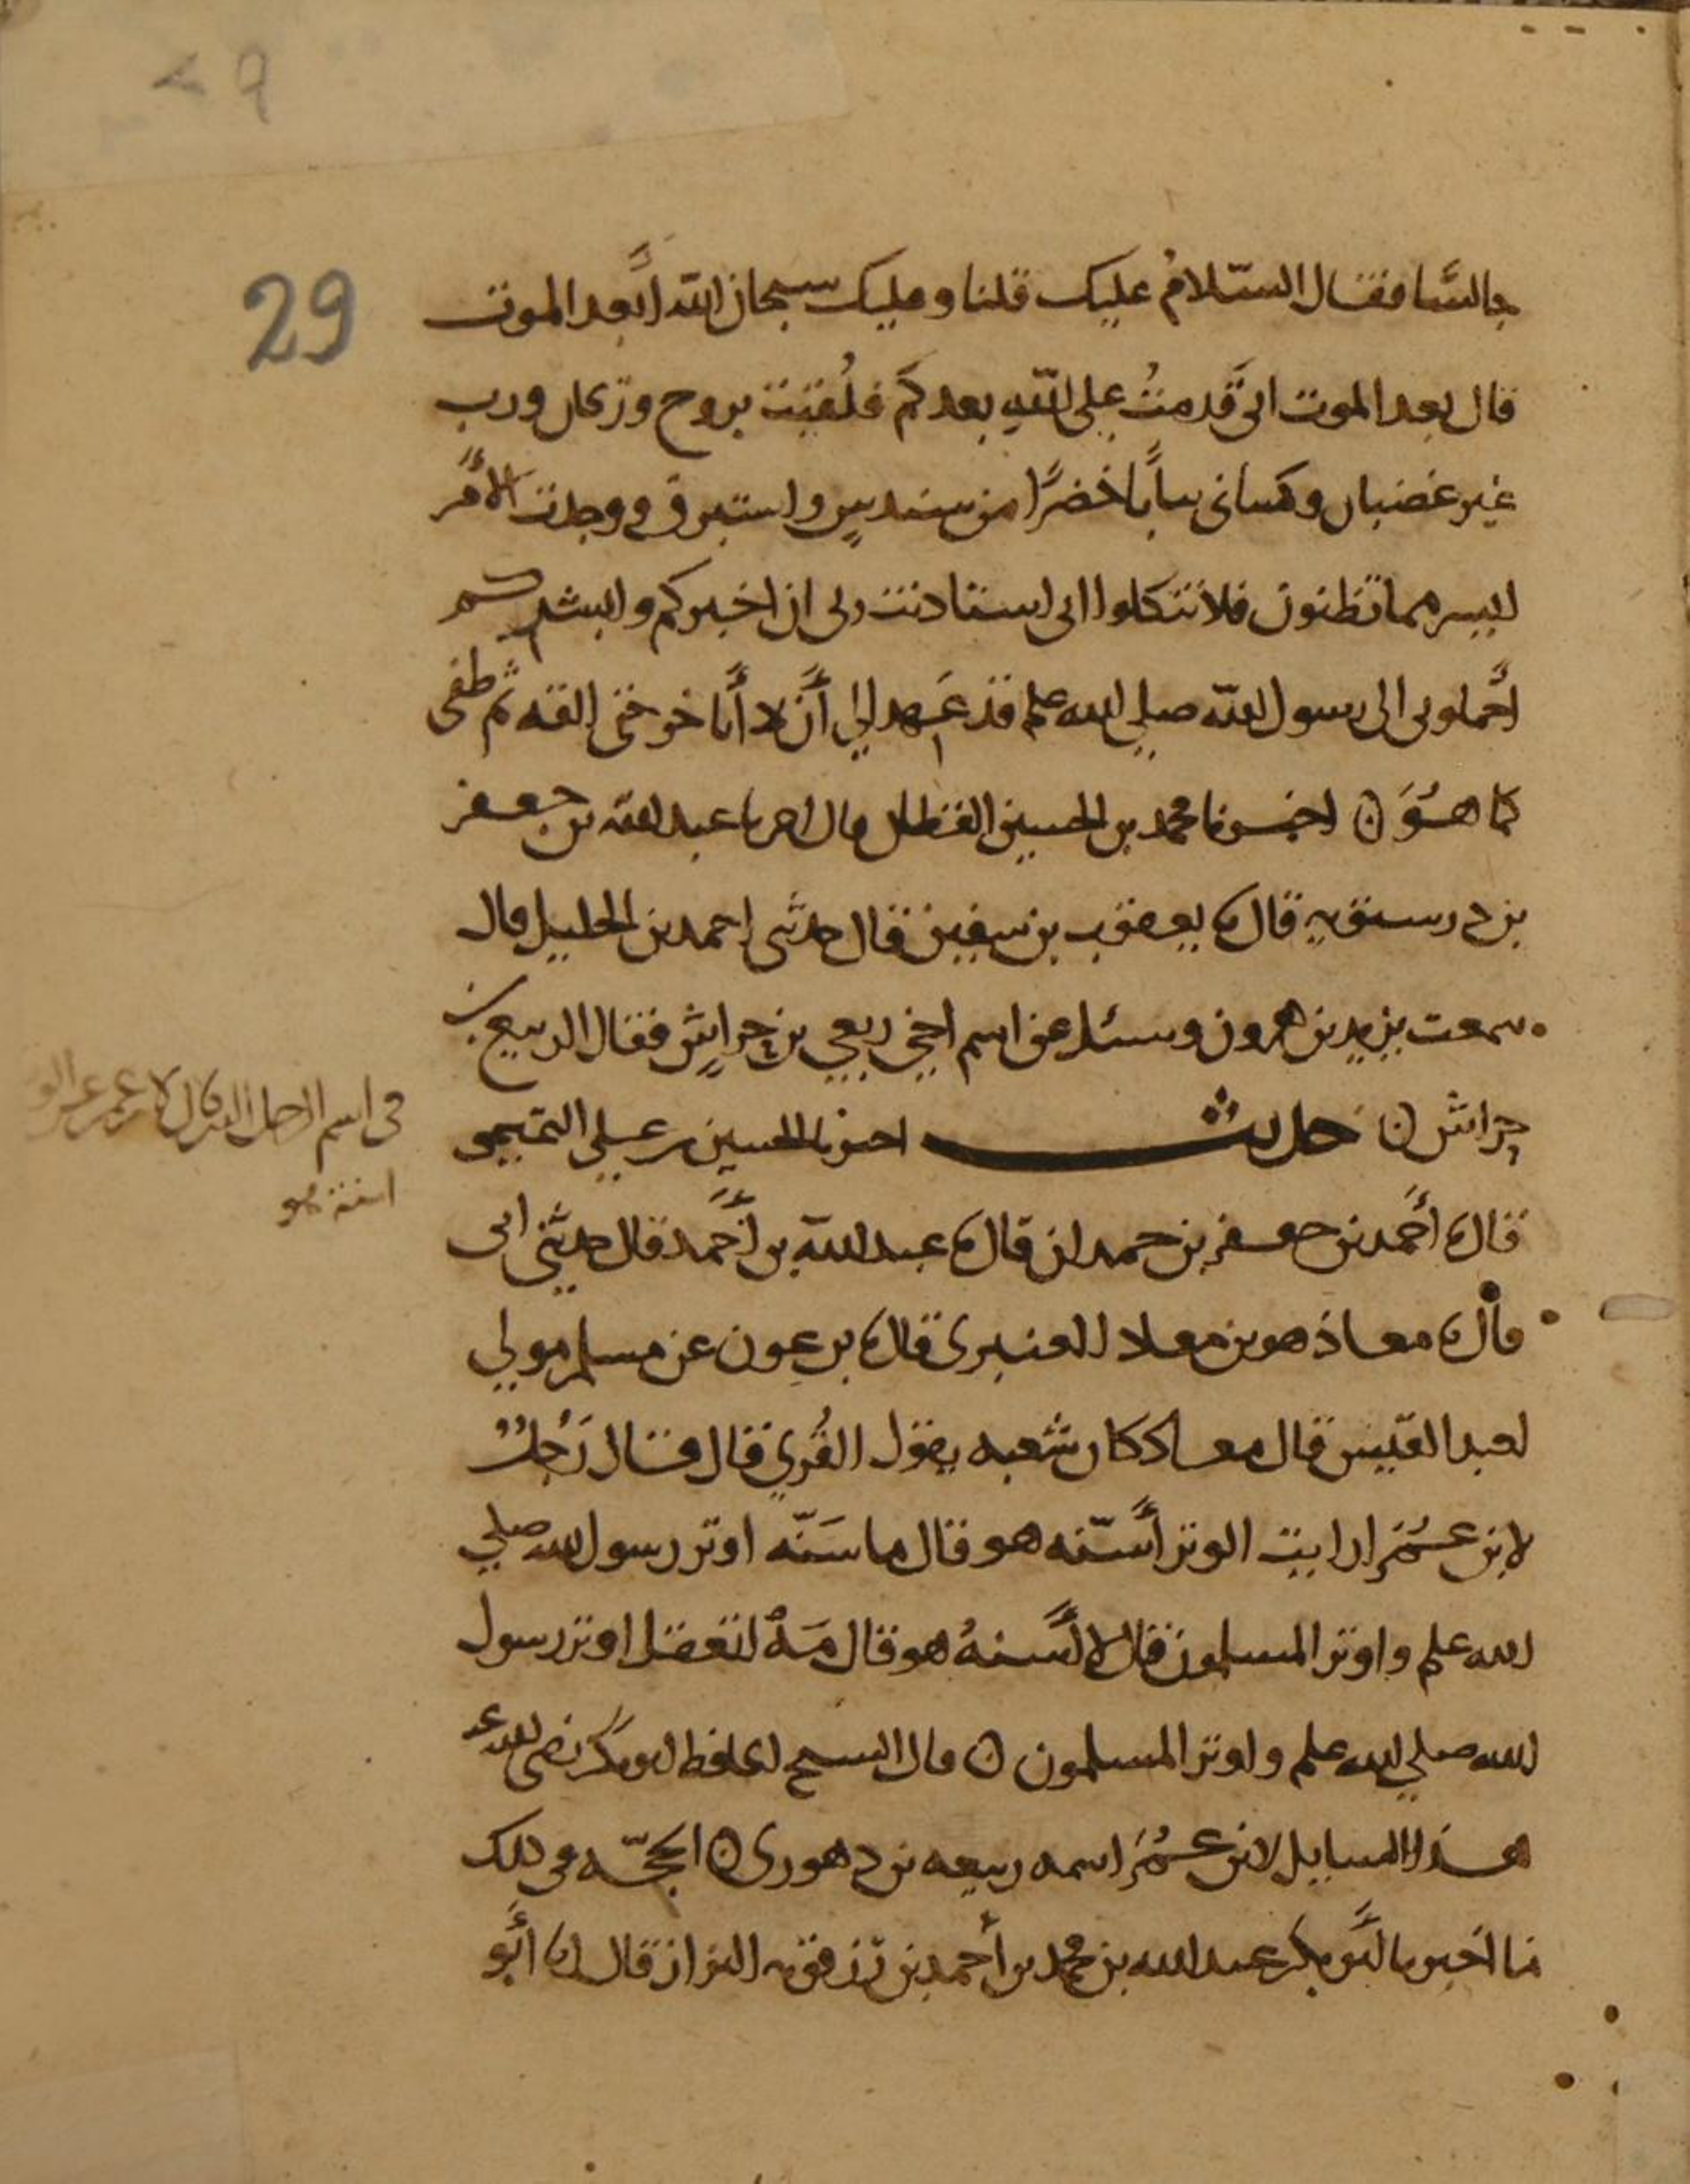 ٢٩
29
جالسًا فقال السّلامُ عليك قلنا وعليك سبحان الله أبعد الموت
قال بعد الموت انى قَدِمتُ على اللهِ بعدكم فلُقِيتُ بروح وريحان ورب
غير غضبان وكسانى ثياباً خضرًا من سندسٍ واستبرق ووجدت الأمر
ايسر مما تظنون فلا تتكلوا انى استاذنت ربى ان اخبركم وابشركم
احملونى الى رسول الله صلى الله علم قد عَهِد الي أن لا أبرح حتى القاه ثم طفى
كما هُوَ ن اخبرنا محمد بن الحسين القطان قال اخبرنا عبد الله بن جعفر
بن درستويه قال نا يعقوب بن سفين قال حدثنى احمد بن الخليل قال
سمعت يزيد بن هرون وسئل عن اسم اخي ربعي بن حِراشٍ فقال الربيع بن
حِراش ن حديث اخبرنا الحسين بن علي التميمى
فى اسم الرجل الذى قال لابن عمر عن الوتر
اسنة هو
قال نا أحمد بن جعفر بن حمدان قال نا عبد الله بن أحمد قال حدثنى ابى
قال نا معاذ هو بن معاذ العنبرى قال نا بن عون عن مسلم مولى
لعبد القيس قال معاذ كان شعبه يقول القُرِّي قال قال رَجُلٌ
لابن عُمَر ارايت الوتر أسُنّه هو قال ما سُنّه اوتر رسول الله صلى
الله علم واوتر المسلمون قال لا أسنهُ هو قال مَهْ اتعقل اوتر رسول
الله صلى الله علم واوتر المسلمون ن قال الشيخ الحافظ ابو بكر رضى الله عنه
هذا السايل لابن عُمَر اسمه ربيعه بن دهورى ن الحجّه فى ذلك
ما اخبرنا أبو بكر عبد الله بن محمد بن أحمد بن رزقويه البزاز قال انا أبو